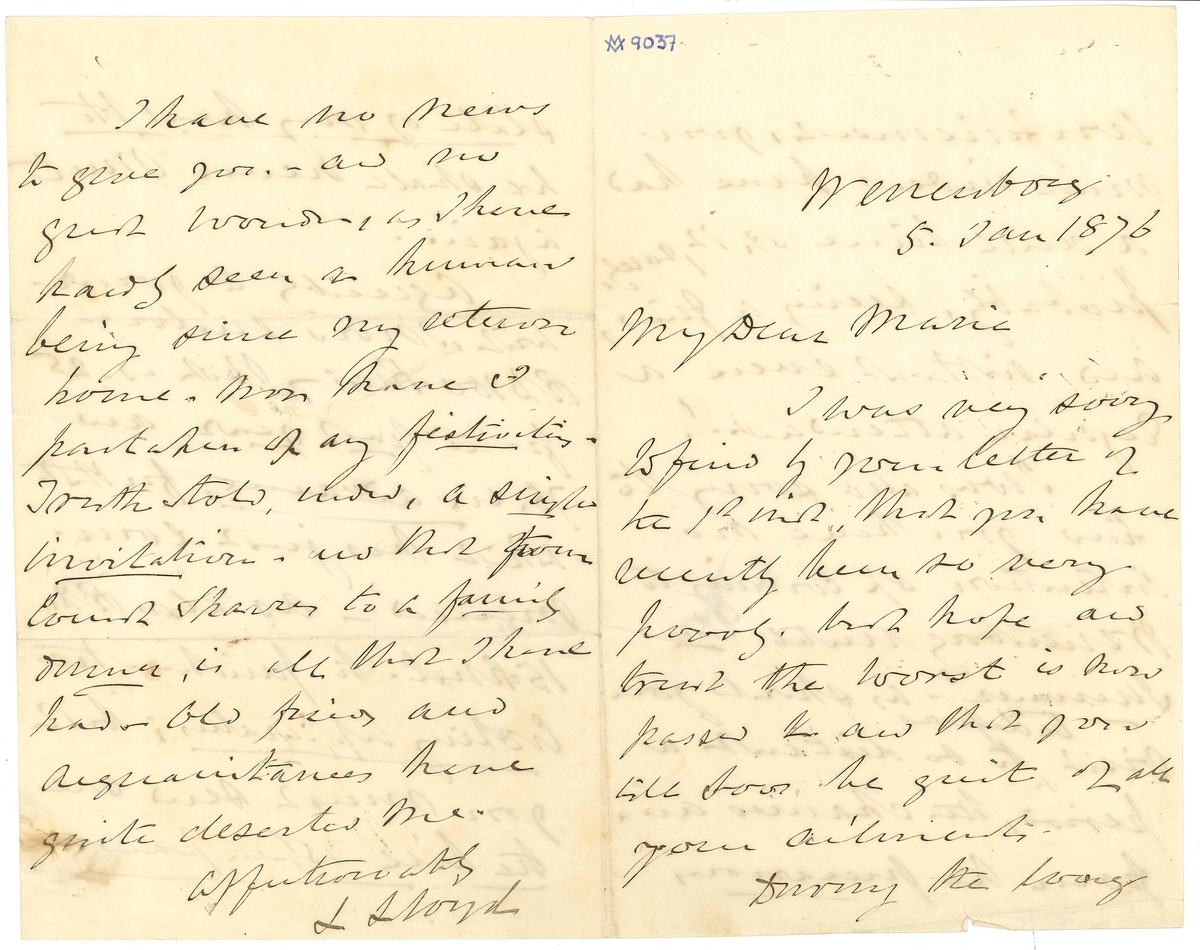 9037
Wenersborg
5. Jan 1876
My Dear Maria
I was very sorry
to find by your letter of
the 1st inst, that you have
recently been so very
poorly. but hope and
trust the worst is now
passed & and that you
will soon be quit of all
your ailments.
During the long
I have no news
to give you. - and no
great wonder, as I have
hardly seen a human
being since my return
home. nor have I
partaken of any festivities -
Truth to told, indeed, a single
invitation - and that from
Count Sparres to a family
dinner, is all that I have
had - Old friends and
acquaintances have
quite deserted me.
affectionately
L Lloyd